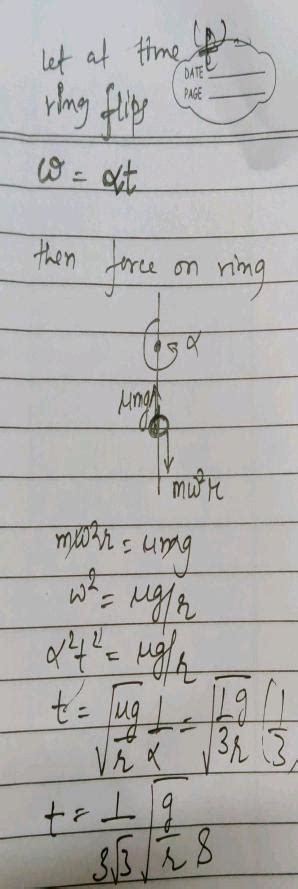 let at time (t)
DATE
PAGE
ring flips
ω = αt
then force on ring
α
μmg
mω²r
mω²r = μmg
ω² = μg/r
α²t² = μg/r
t = √(μg/r) 1/α = √(1g/3r) (1/3)
t = 1/(3√3) √(g/r) s